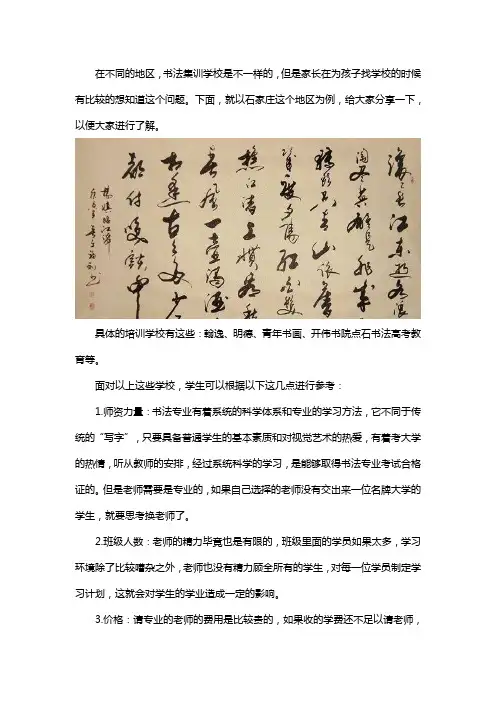 在不同的地区，书法集训学校是不一样的，但是家长在为孩子找学校的时候
有比较的想知道这个问题。下面，就以石家庄这个地区为例，给大家分享一下，
以便大家进行了解。
滚〻长江东逝水浪
淘尽英雄是非成
转头空青山依旧
几度夕阳红白发
樵江渚上惯看秋
春风一壶浊酒
相逢古今多少
都付笑谈中
杨慎临江仙
具体的培训学校有这些：翰逸、明德、青年书画、开伟书院点石书法高考教
育等。
面对以上这些学校，学生可以根据以下这几点进行参考：
1.师资力量：书法专业有着系统的科学体系和专业的学习方法，它不同于传
统的“写字”，只要具备普通学生的基本素质和对视觉艺术的热爱，有着考大学
的热情，听从教师的安排，经过系统科学的学习，是能够取得书法专业考试合格
证的。但是老师需要是专业的，如果自己选择的老师没有交出来一位名牌大学的
学生，就要思考换老师了。
2.班级人数：老师的精力毕竟也是有限的，班级里面的学员如果太多，学习
环境除了比较嘈杂之外，老师也没有精力顾全所有的学生，对每一位学员制定学
习计划，这就会对学生的学业造成一定的影响。
3.价格：请专业的老师的费用是比较贵的，如果收的学费还不足以请老师，